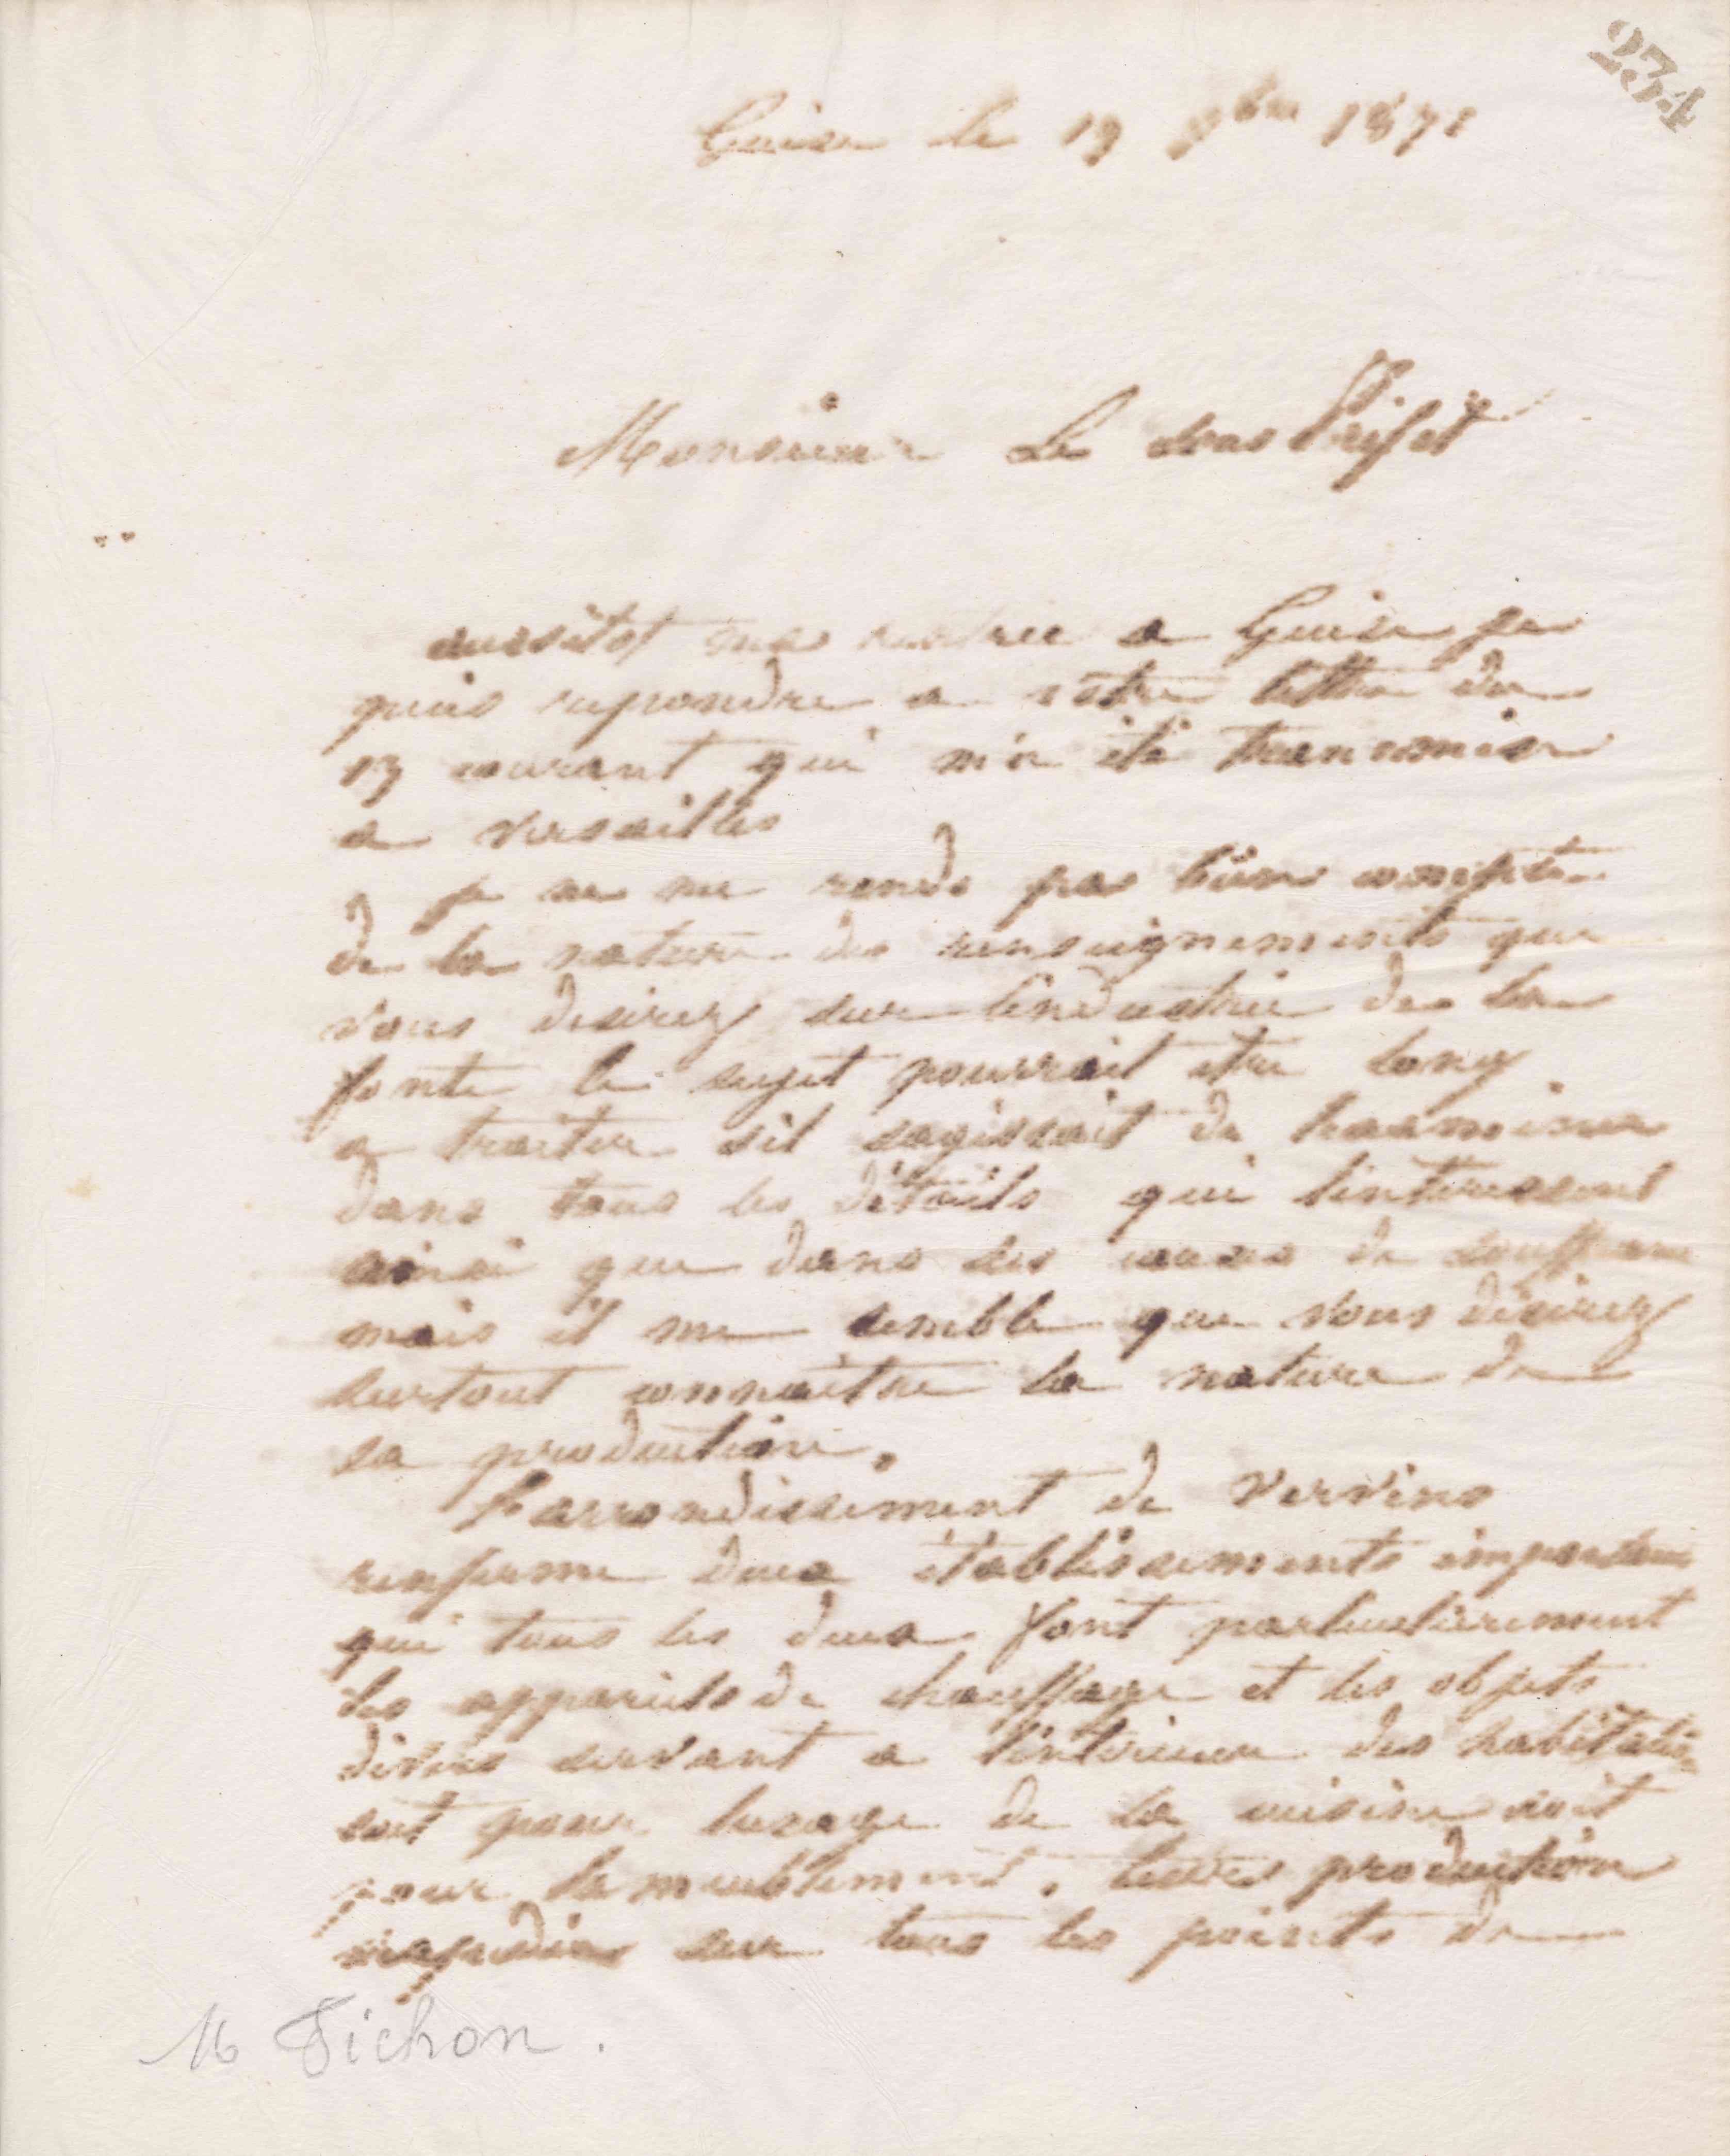 234
Guise le 19 9bre 1871
Monsieur Le sous Préfet
aussitot ma rentree a Guise je
puis repondre a votre lettre du
13 courant qui m'a été transmise
a versailles
je ne me rends pas bien compte
de la nature des renseignements que
vous desirez sur lindustrie de la
fonte le sujet pourrait etre long
a traiter sil sagissait de lexaminer
dans tous les détails qui linteressent
ainsi que dans ses causes de souffrance
mais il me semble que vous désirez
surtout connaitre la nature de
sa production.
Larrondissement de Vervins
renferme deux établissements importants
qui tous les deux font particulièrement
les appareils de chauffage et les objets
divers servant a lintérieur des habitations
soit pour lusage de la cuisine soit
pour lameublement. leurs production
sur tous les points de
M Fichon.